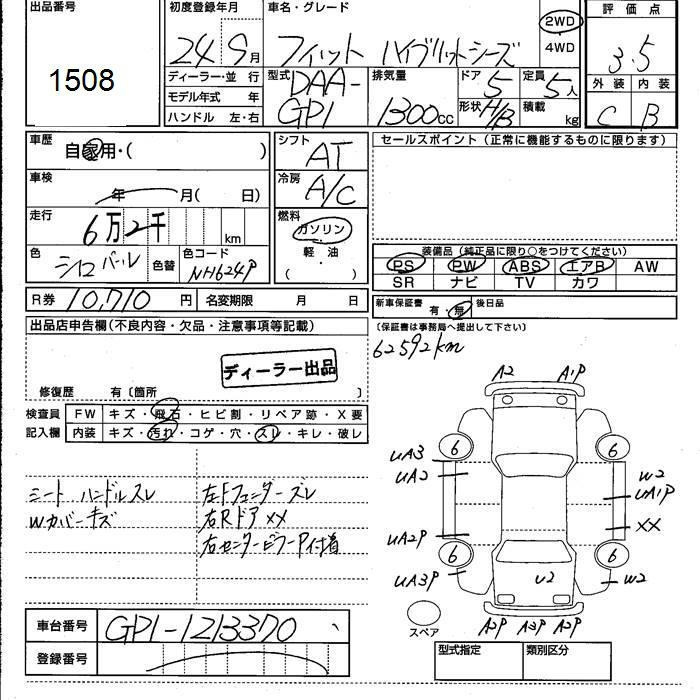 出品番号
1508
初度登録年月
24 9月
車名・グレード
フィット ハイブリットシーズ
2WD
4WD
評価点
3.5
外装 内装
C B
ディーラー・並 行
モデル年式 年
ハンドル 左・右
型式 DAA-
GP1
排気量
1300cc
ドア 5
形状 H/B
定員 5人
積載 kg
車歴
自家用・( )
車検
年 月( 日)
走行
6万2千 km
色 シロパール 色替
色コード NH624P
シフト
AT
冷房
A/C
燃料
ガソリン
軽・油
( )
セールスポイント(正常に機能するものに限ります)
装備品(純正品に限り○をつけてください)
PS PW ABS エアB AW
SR ナビ TV カワ
R券 10,710 円 名変期限 月 日
新車保証書 有・無 後日品
(保証書は事務局へ提出して下さい)
62592km
出品店申告欄(不良内容・欠品・注意事項等記載)
ディーラー出品
修復歴 有〔箇所 〕
検査員
記入欄
FW キズ・飛石・ヒビ割・リペア跡・X要
内装 キズ・汚れ・コゲ・穴・スレ・キレ・破レ
シート ハンドルスレ
Wカバーキズ
左Fフェンダーズレ
右Rドア XX
右センターピラーP付着
A2 A1P
U2
6 6
UA3
UA2
W2
UA1P
XX
UA2P
6 6
UA3P
U2
W2
A2P A3P A2P
スペア
車台番号 GP1-1213370
登録番号
型式指定 類別区分